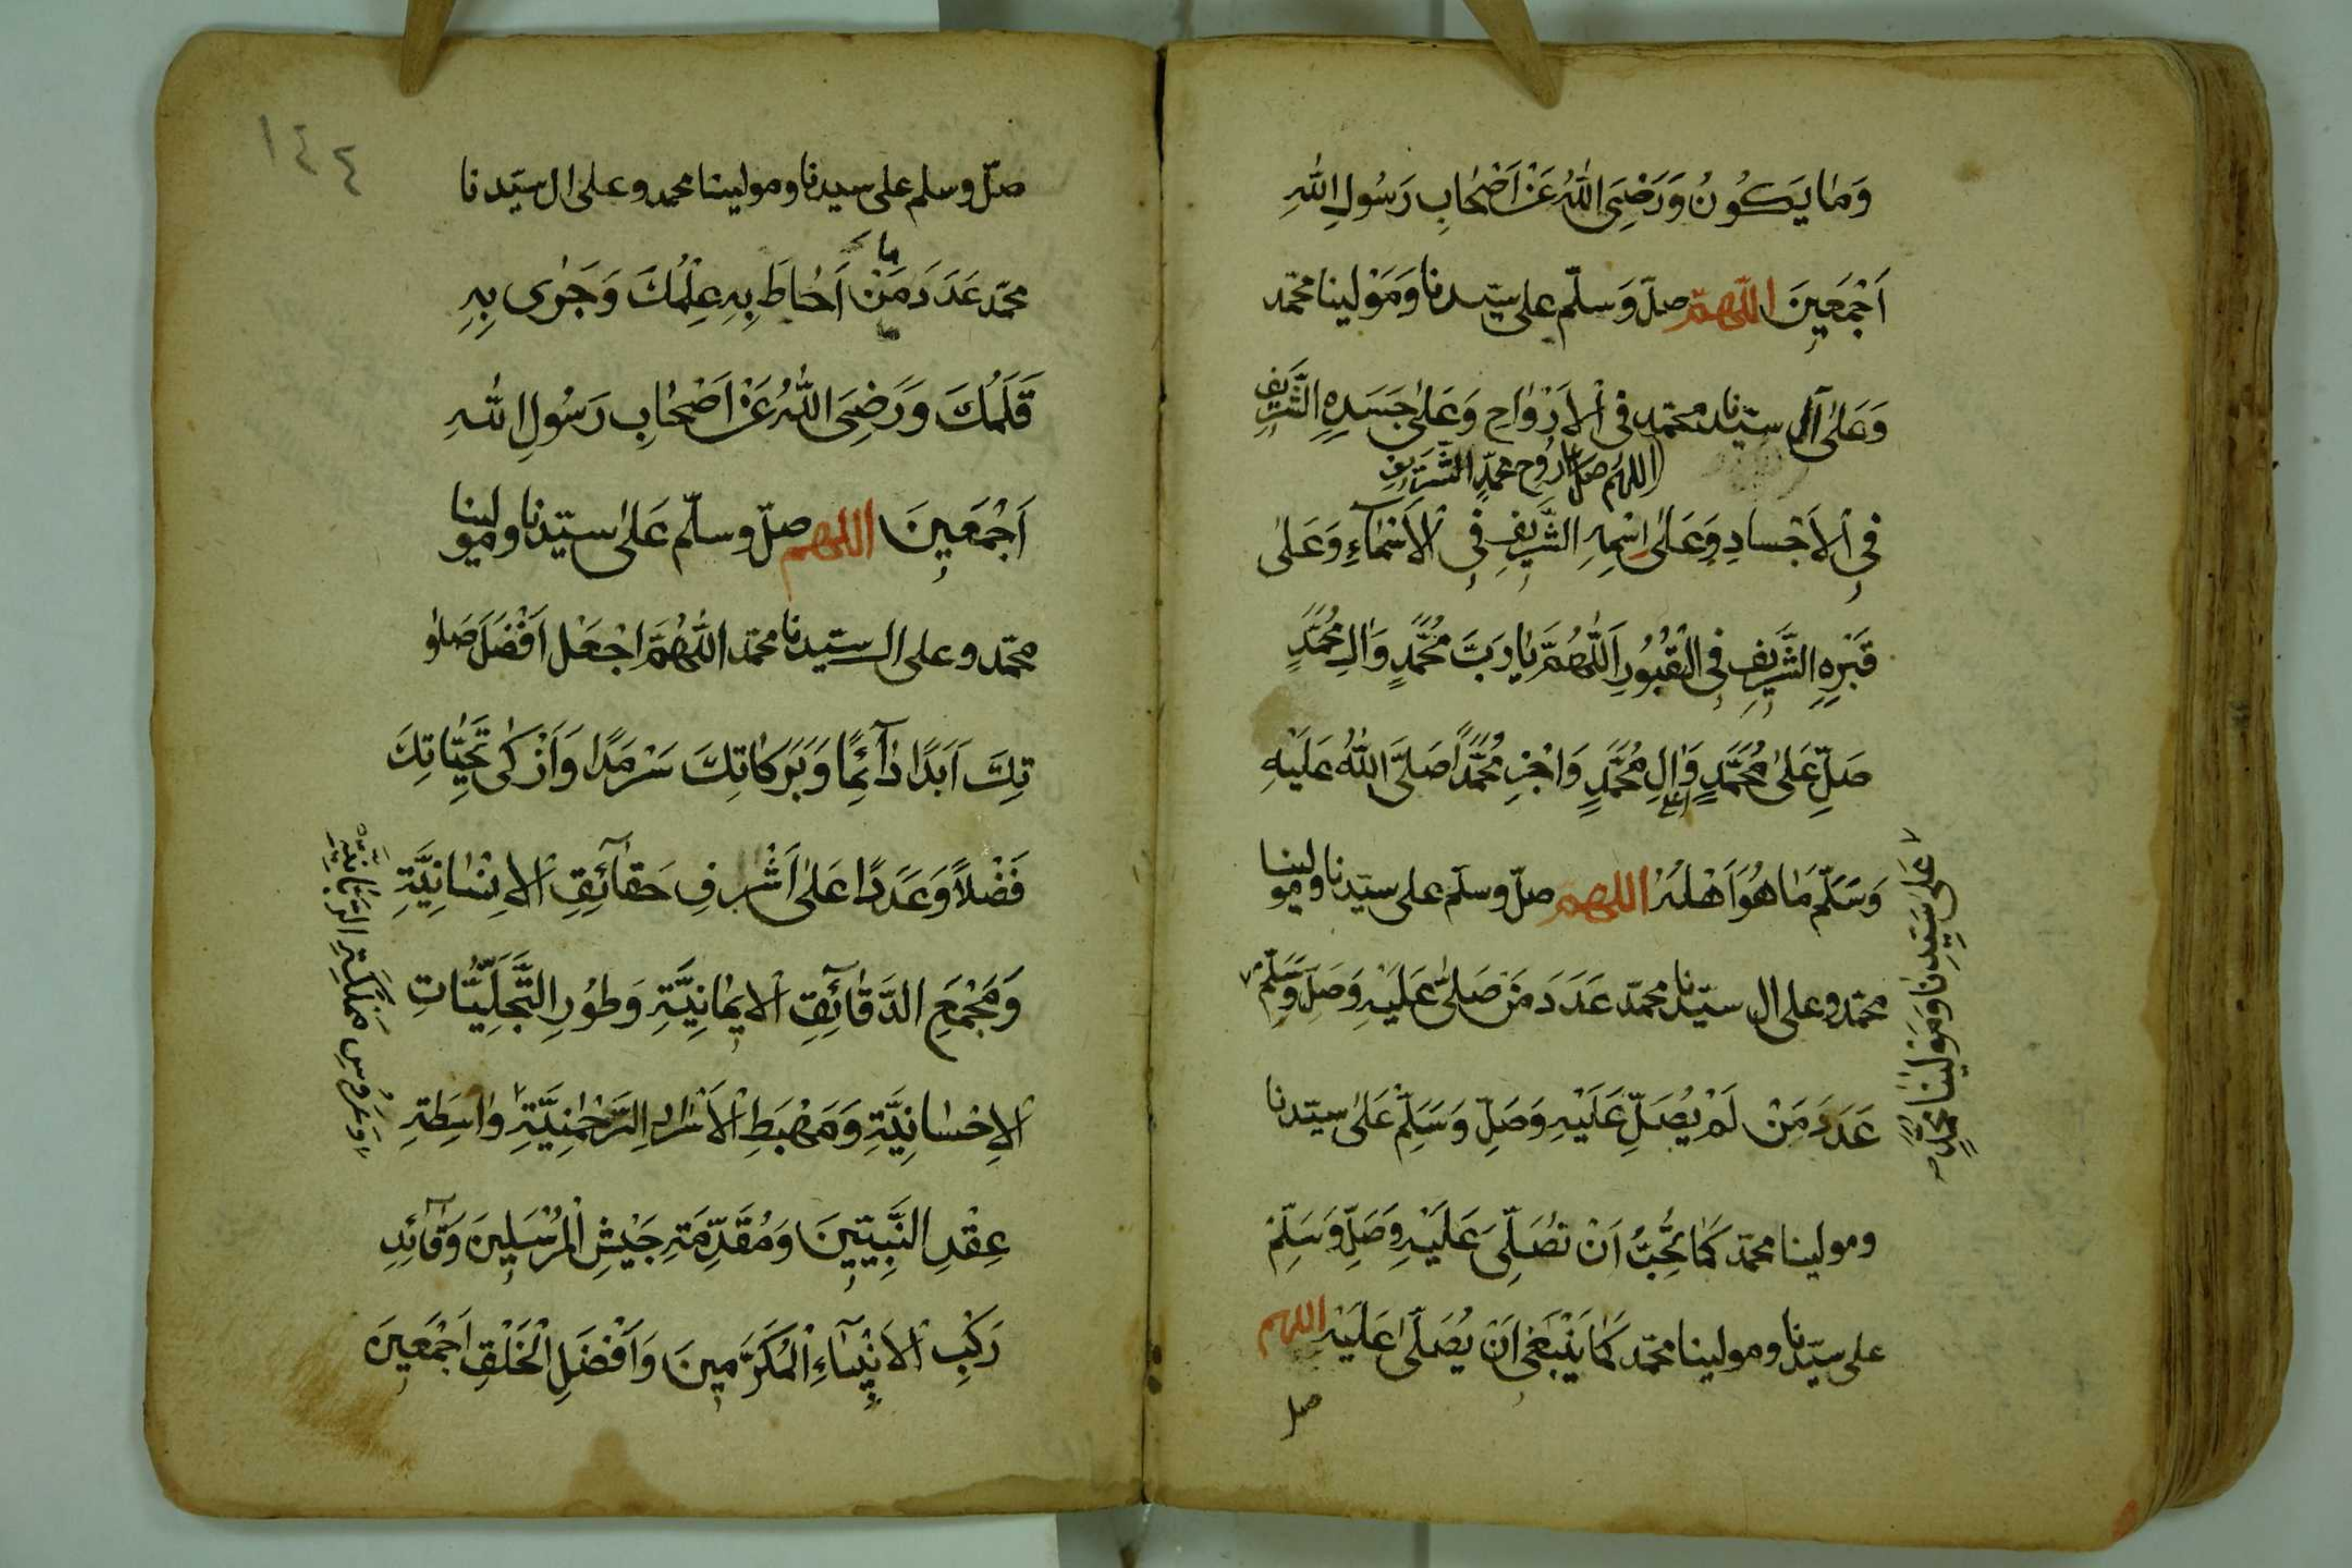 وَمٰا يَكُونُ وَرَضِىَ اللهُ عَنْ اَصْحٰابِ رَسُولِ اللهِ
اَجْمَعِينَ اللّهمّ صلّ وَسلّم على سيّدنا وَمَوْلينا محمّد
وَعَلىٰ آل سيّدنا محمّد فى الاَرْوٰاحِ وَعَلىٰ جَسَدِهِ الشَّرِيفِ
اللهم صل على رُوح محمّدٍ الشَّرِيفِ
فِى الاَجْسادِ وَعَلىٰ اِسْمِهِ الشَّرِيفِ فِى الاَسْمٰآءِ وَعَلىٰ
قَبْرِهِ الشَّرِيفِ فِى الْقُبُورِ اَللّٰهُمَّ يٰا رَبَّ مُحَمَّدٍ وَاٰلِ مُحَمَّدٍ
صَلِّ عَلىٰ مُحَمَّدٍ وَاٰلِ مُحَمَّدٍ وَاجْزِ مُحَمَّدًا صَلَّى اللهُ عَلَيْهِ
وَسَلَّمَ مٰا هُوَ اَهْلُهُ اللهم صلّ وسلّم على سيّدنا ومولينا
محمّد وعلى ال سيّدنا محمّد عَدَدَ مَنْ صَلىّٰ عَلَيْهِ وَصَلِّ وَسَلِّمْ
عَلىٰ سَيِّدِنٰا وَمَوْلٰينٰا مُحَمَّدٍ
عَدَدَ مَنْ لَمْ يُصَلِّ عَلَيْهِ وَصَلِّ وَسَلِّمْ عَلىٰ سيّدنا
ومولينا محمّد كَمٰا تُحِبُّ اَنْ تُصَلِّىَ عَلَيْهِ وَصَلِّ وَسَلِّمْ
على سيّدنا ومولينا محمّد كَمٰا يَنْبَغِى اَنْ يُصَلّىٰ عَلَيْهِ اللهم
صل
١٤٤
صلّ وسلم على سيدنا ومولينا محمد وعلىٰ ال سيّدنا
ما
محمّد عَدَدَ مَنْ اَحٰاطَ بِهِ عِلْمُكَ وَجَرٰى بِهِ
قَلَمُكَ وَرَضِىَ اللهُ عَنْ اَصْحٰابِ رَسُولِ اللهِ
اَجْمَعِينَ اللهم صلّ وسلّم عَلىٰ سيّدنا ومولينا
محمّد وعلى ال سيّدنا محمّد اللّٰهُمَّ اجْعَلْ اَفْضَلَ صَلوٰ
تِكَ اَبَدًا دٰآئِمًا وَبَرَكٰاتِكَ سَرْمَدًا وَاَزْكٰى تَحِيّٰاتِكَ
فَضْلاً وَعَدَدًا عَلىٰ اَشْرفِ حَقٰآئِقِ الاِنْسٰانِيَّةِ
وَمَجْمَعِ الدَّقٰآئِقِ الاِيمٰانِيَّةِ وَطُورِ التَّجَلِّيٰاتِ
الاِحْسٰانِيَّةِ وَمَهْبَطِ الاَسْرٰارِ الرَّحْمٰنِيَّةِ وٰاسِطَةِ
وَعَرُوسِ مَمْلَكَةِ الرَّبّٰانِيَّةِ
عِقْدِ النَّبِيّينَ وَمُقَدِّمَةِ جَيْشِ الْمُرْسَلِينَ وَقٰآئِدِ
رَكْبِ الاَنْبِيٰآءِ الْمُكَرَّمِينَ وَاَفْضَلِ الْخَلْقِ اَجْمَعِينَ